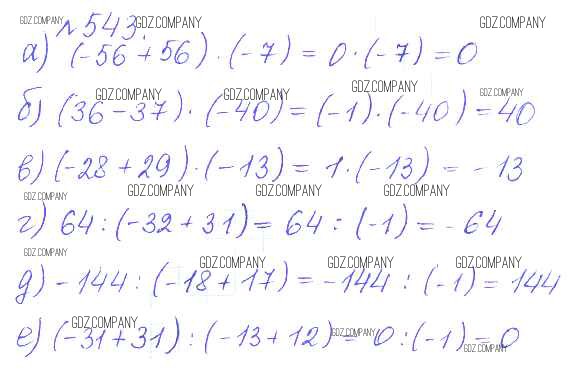 GDZ.COMPANY № 543. GDZ.COMPANY GDZ.COMPANY
а) (-56 + 56) · (-7) = 0 · (-7) = 0
GDZ.COMPANY GDZ.COMPANY GDZ.COMPANY GDZ.COMPANY
б) (36 - 37) · (-40) = (-1) · (-40) = 40
в) (-28 + 29) · (-13) = 1 · (-13) = - 13
GDZ.COMPANY GDZ.COMPANY GDZ.COMPANY GDZ.COMPANY
г) 64 : (-32 + 31) = 64 : (-1) = - 64
GDZ.COMPANY GDZ.COMPANY GDZ.COMPANY GDZ.COMPANY
д) - 144 : (-18 + 17) = -144 : (-1) = 144
GDZ.COMPANY GDZ.COMPANY GDZ.COMPANY
е) (-31 + 31) : (-13 + 12) = 0 : (-1) = 0